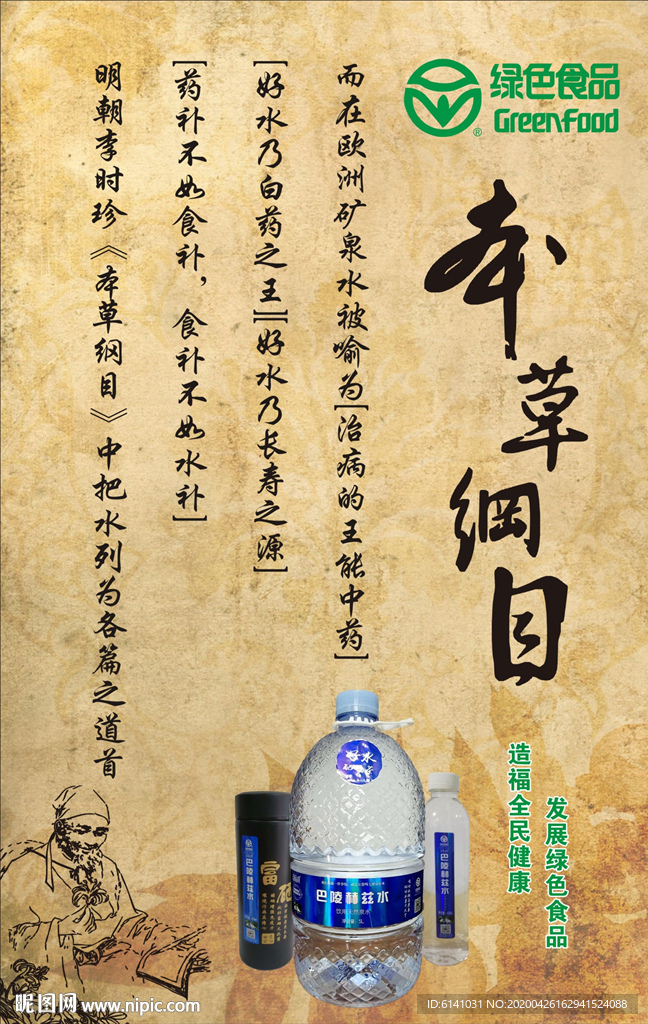 绿色食品
GreenFood
®
本草纲目
而在欧洲矿泉水被喻为[治病的王能中药]
[好水乃白药之王][好水乃长寿之源]
[药补不如食补，食补不如水补]
明朝李时珍《本草纲目》中把水列为各篇之道首
发展绿色食品
造福全民健康
好水
巴陵赫兹水
饮用天然泉水
净含量：5L
富硒
巴陵赫兹水
巴陵赫兹水
昵图网 www.nipic.com
ID:6141031 NO:20200426162941524088